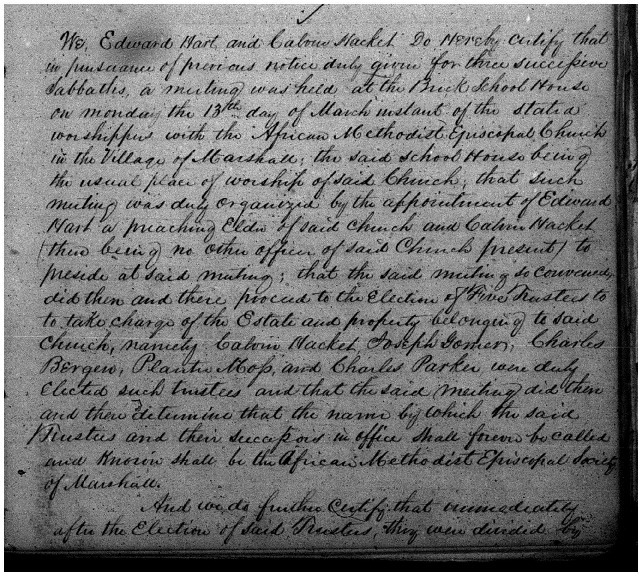 We, Edward Hart and Calvin Hacket Do Hereby certify that
in pursuance of previous notice duly given for three successive
Sabbaths, a meeting was held at the Brick School House
on monday the 13th day of March instant of the stated
worshippers with the African Methodist Episcopal Church
in the Village of Marshall; the said School House being
the usual place of worship of said Church; that such
meeting was duly organized by the appointment of Edward
Hart a preaching Elder of said church and Calvin Hacket
(there being no other officer of said Church present) to
preside at said meeting; that the said meeting so convened,
did then and there proceed to the Election of Five Trustees to
to take charge of the Estate and property belonging to said
Church, namely; Calvin Hacket Joseph Gomer; Charles
Bergen, Moss, and Charles Parker were duly
Elected such trustees and that the said meeting did then
and there determine that the name by which the said
Trustees and their successors in office shall forever be called
and Known shall be the African Methodist Episcopal Society
of Marshall.
And we do further Certify, that immediately
after the Election of said Trustees, they were divided by